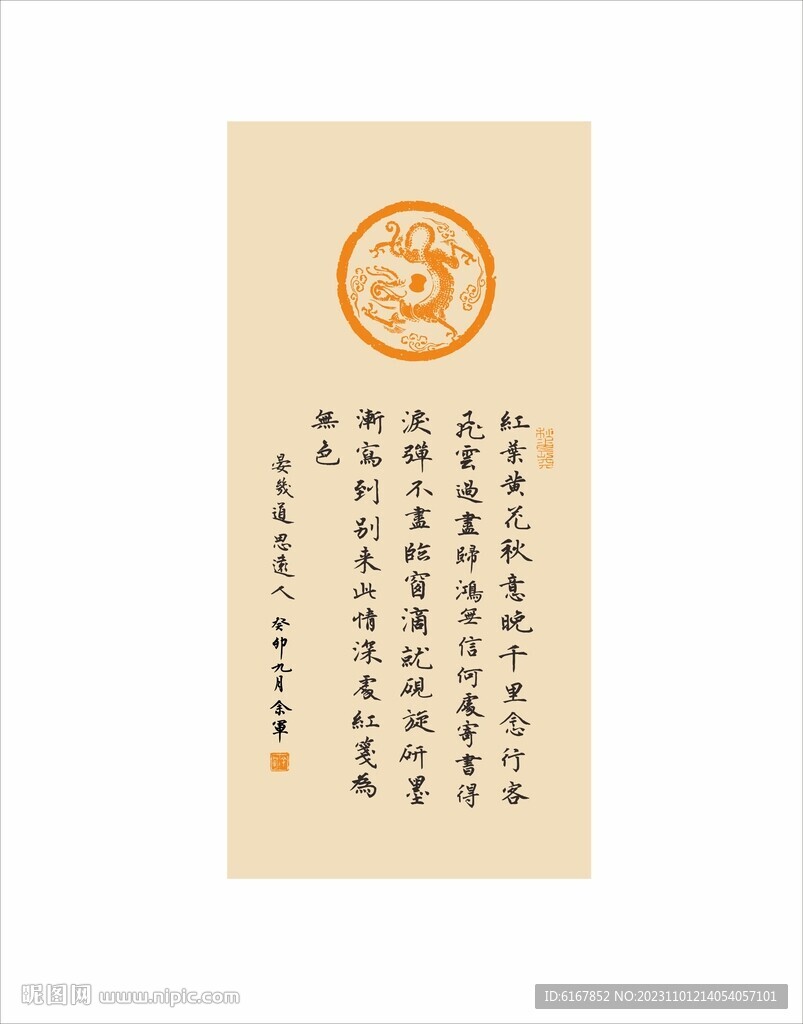 紅葉黄花秋意晚千里念行客
飛雲過盡歸鴻無信何處寄書得
淚彈不盡臨窗滴就硯旋研墨
漸寫到别来此情深處紅箋為
無色
晏幾道思遠人 癸卯九月余軍
昵图网 www.nipic.com
ID:6167852 NO:20231101214054057101